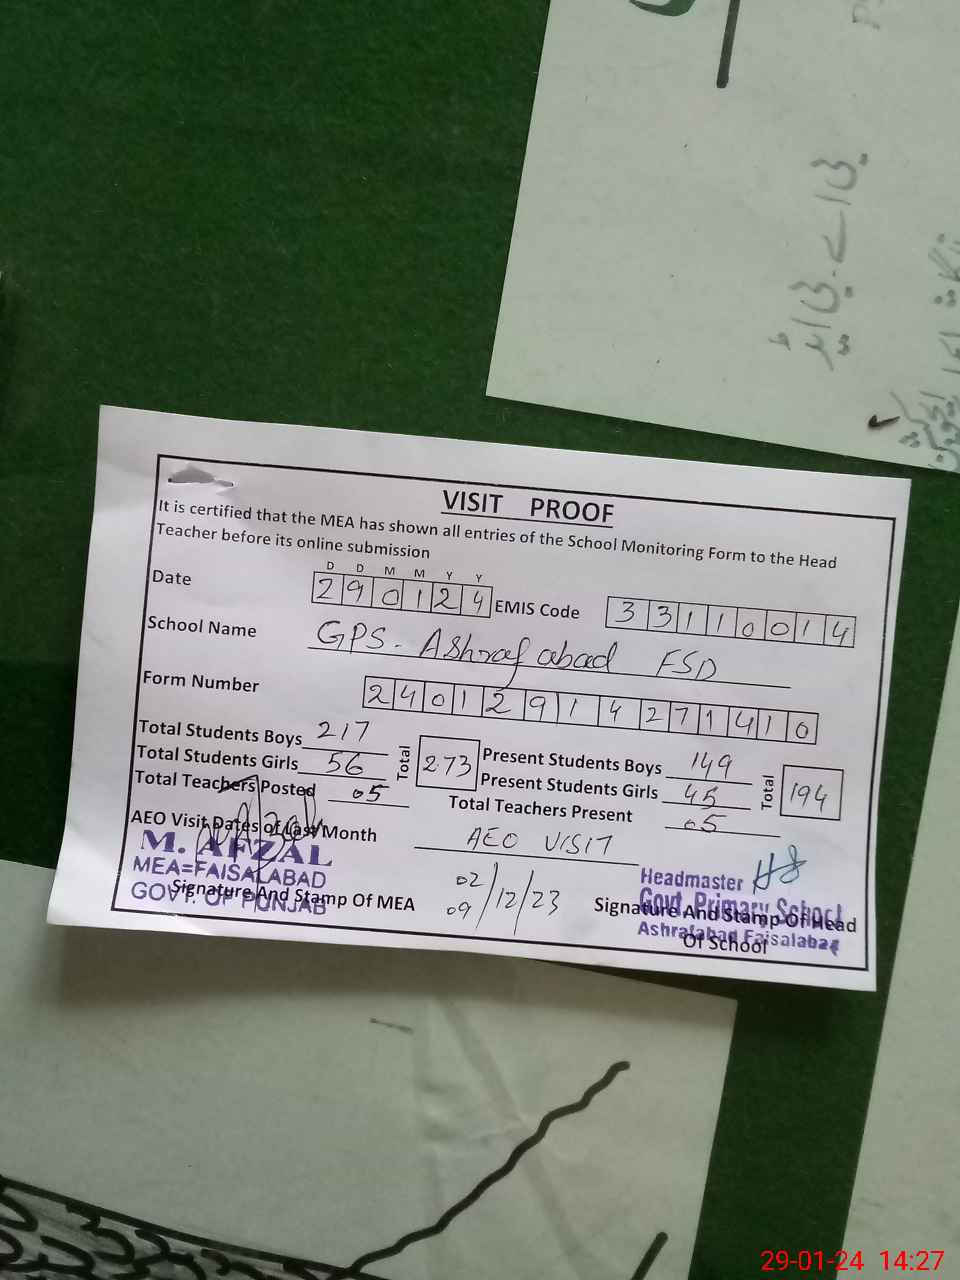 VISIT PROOF
It is certified that the MEA has shown all entries of the School Monitoring Form to the Head
Teacher before its online submission
D D M M Y Y
Date 290124 EMIS Code 33110014
School Name GPS - Ashrafabad FSD
Form Number 24012914271410
Total Students Boys 217 Total 273 Present Students Boys 149 Total 194
Total Students Girls 56 Present Students Girls 45
Total Teachers Posted 05 Total Teachers Present 05
AEO Visit Dates of Last Month AEO VISIT
02/12/23
09
M. AFZAL
MEA=FAISALABAD
GOVT. OF PUNJAB
Signature And Stamp Of MEA
Headmaster
Govt. Primary School
Ashrafabad Faisalabad
Signature And Stamp Of Head
Of School
29-01-24 14:27